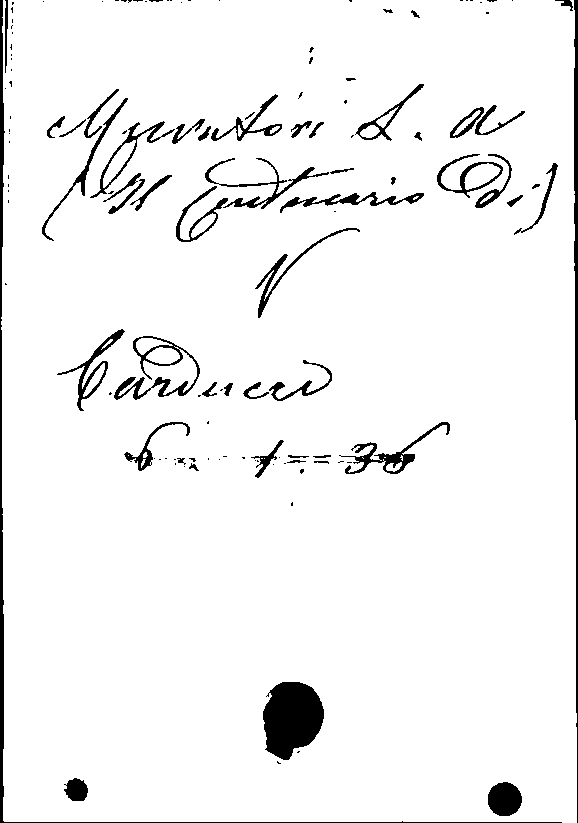 Muratori L. A
(Il Centenario di)
V
Carducci
6 - 1 - 36